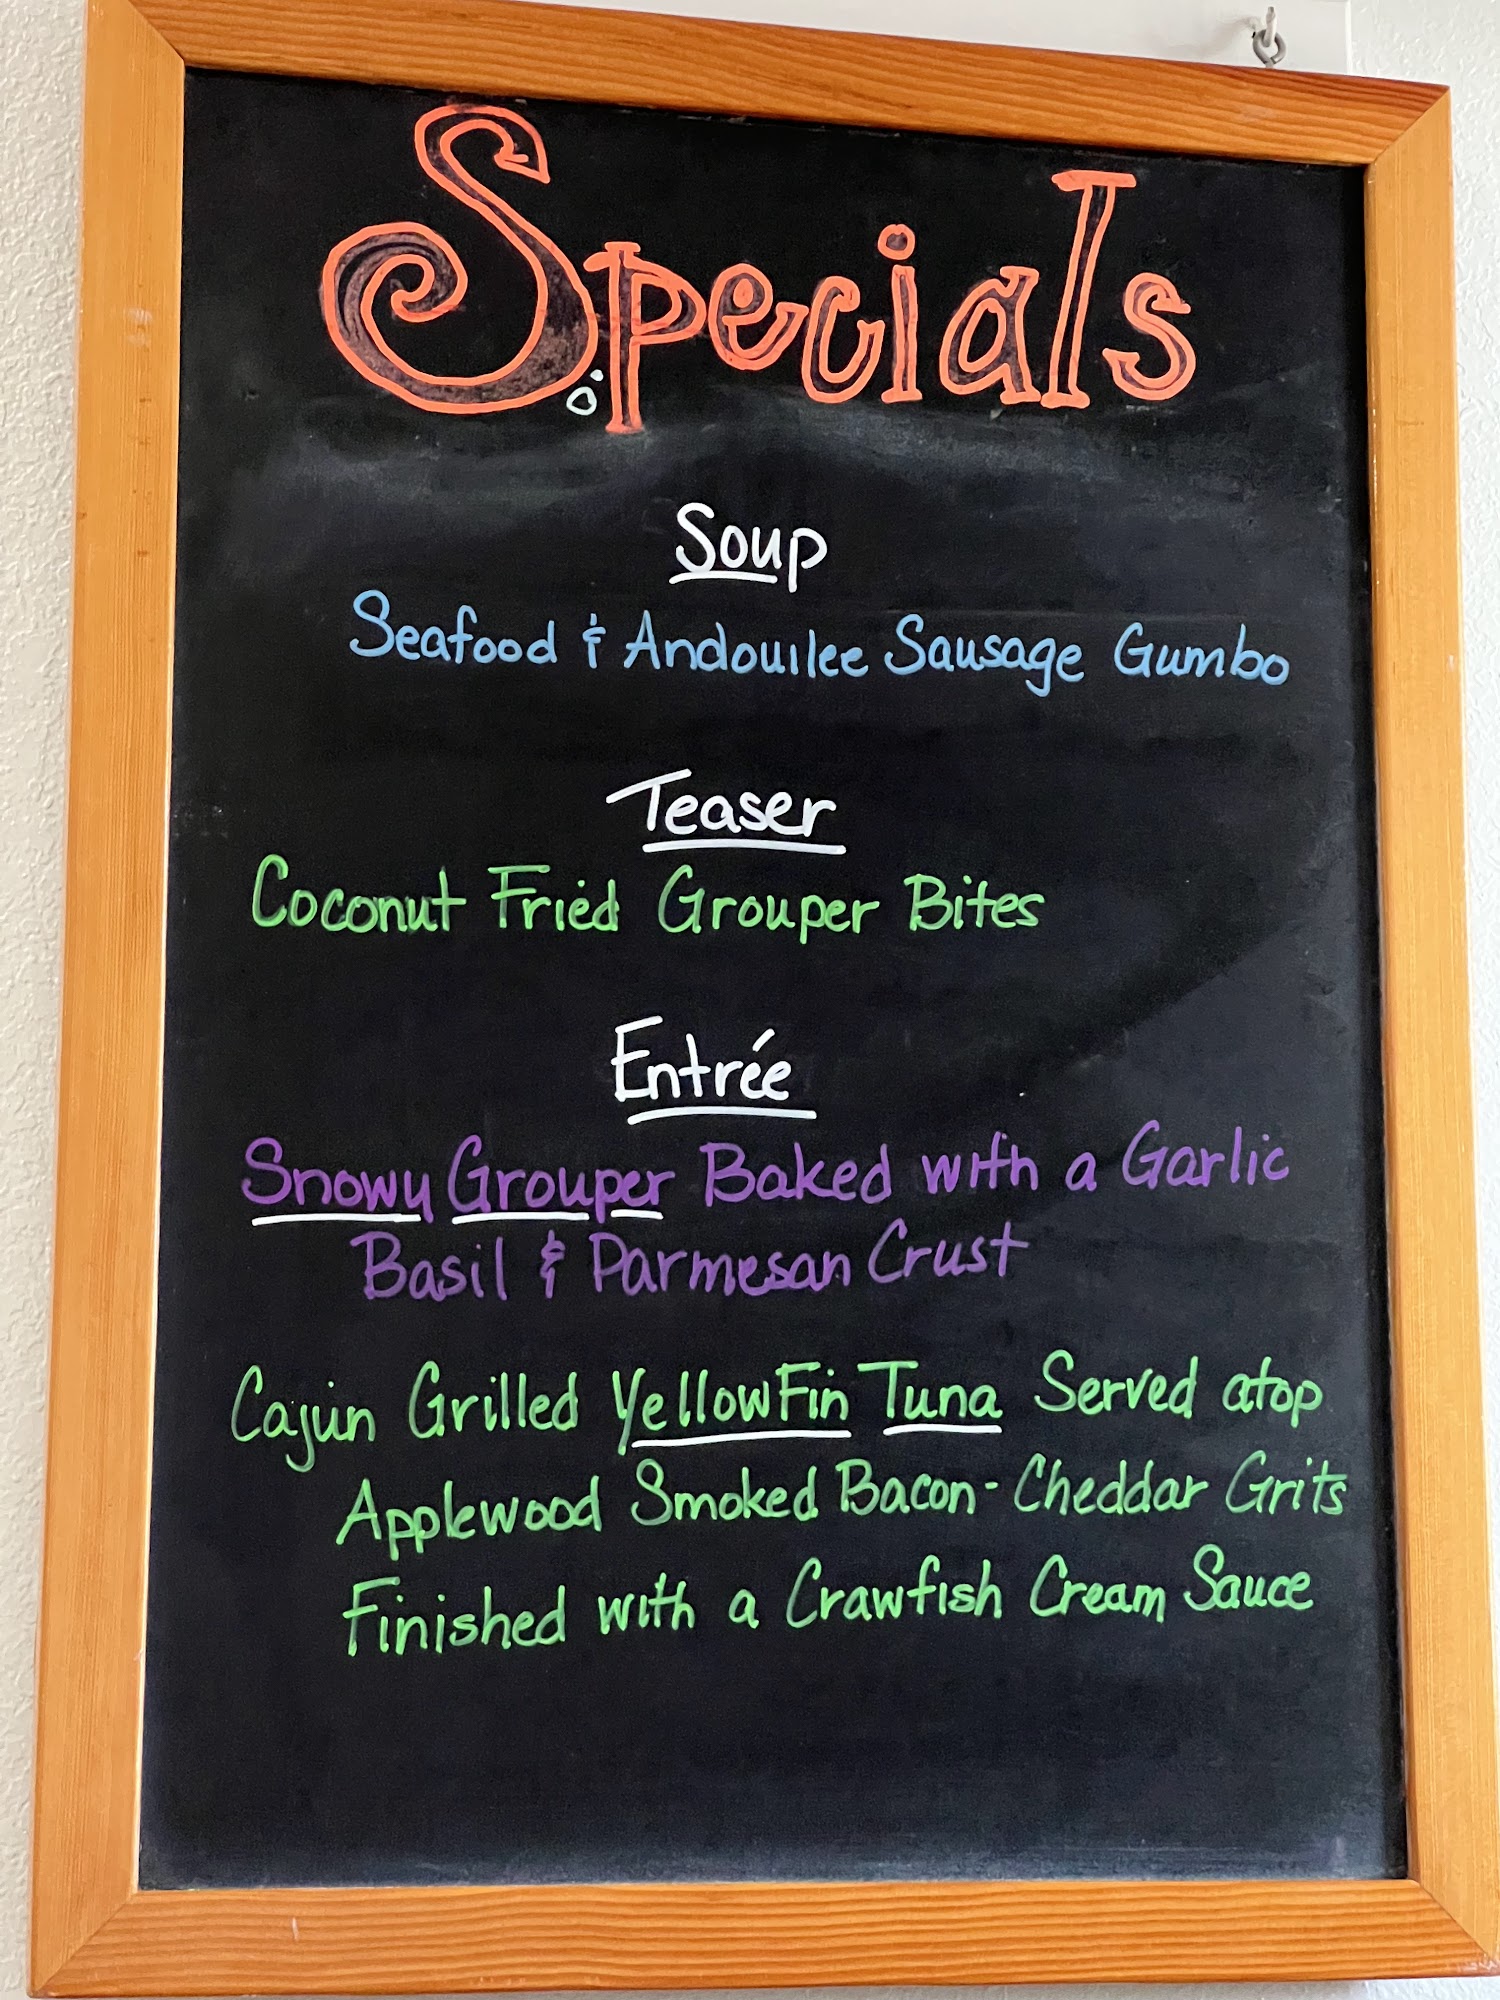 Specials
Soup
Seafood & Andouilee Sausage Gumbo
Teaser
Coconut Fried Grouper Bites
Entrée
Snowy Grouper Baked with a Garlic
Basil & Parmesan Crust
Cajun Grilled YellowFin Tuna Served atop
Applewood Smoked Bacon-Cheddar Grits
Finished with a Crawfish Cream Sauce